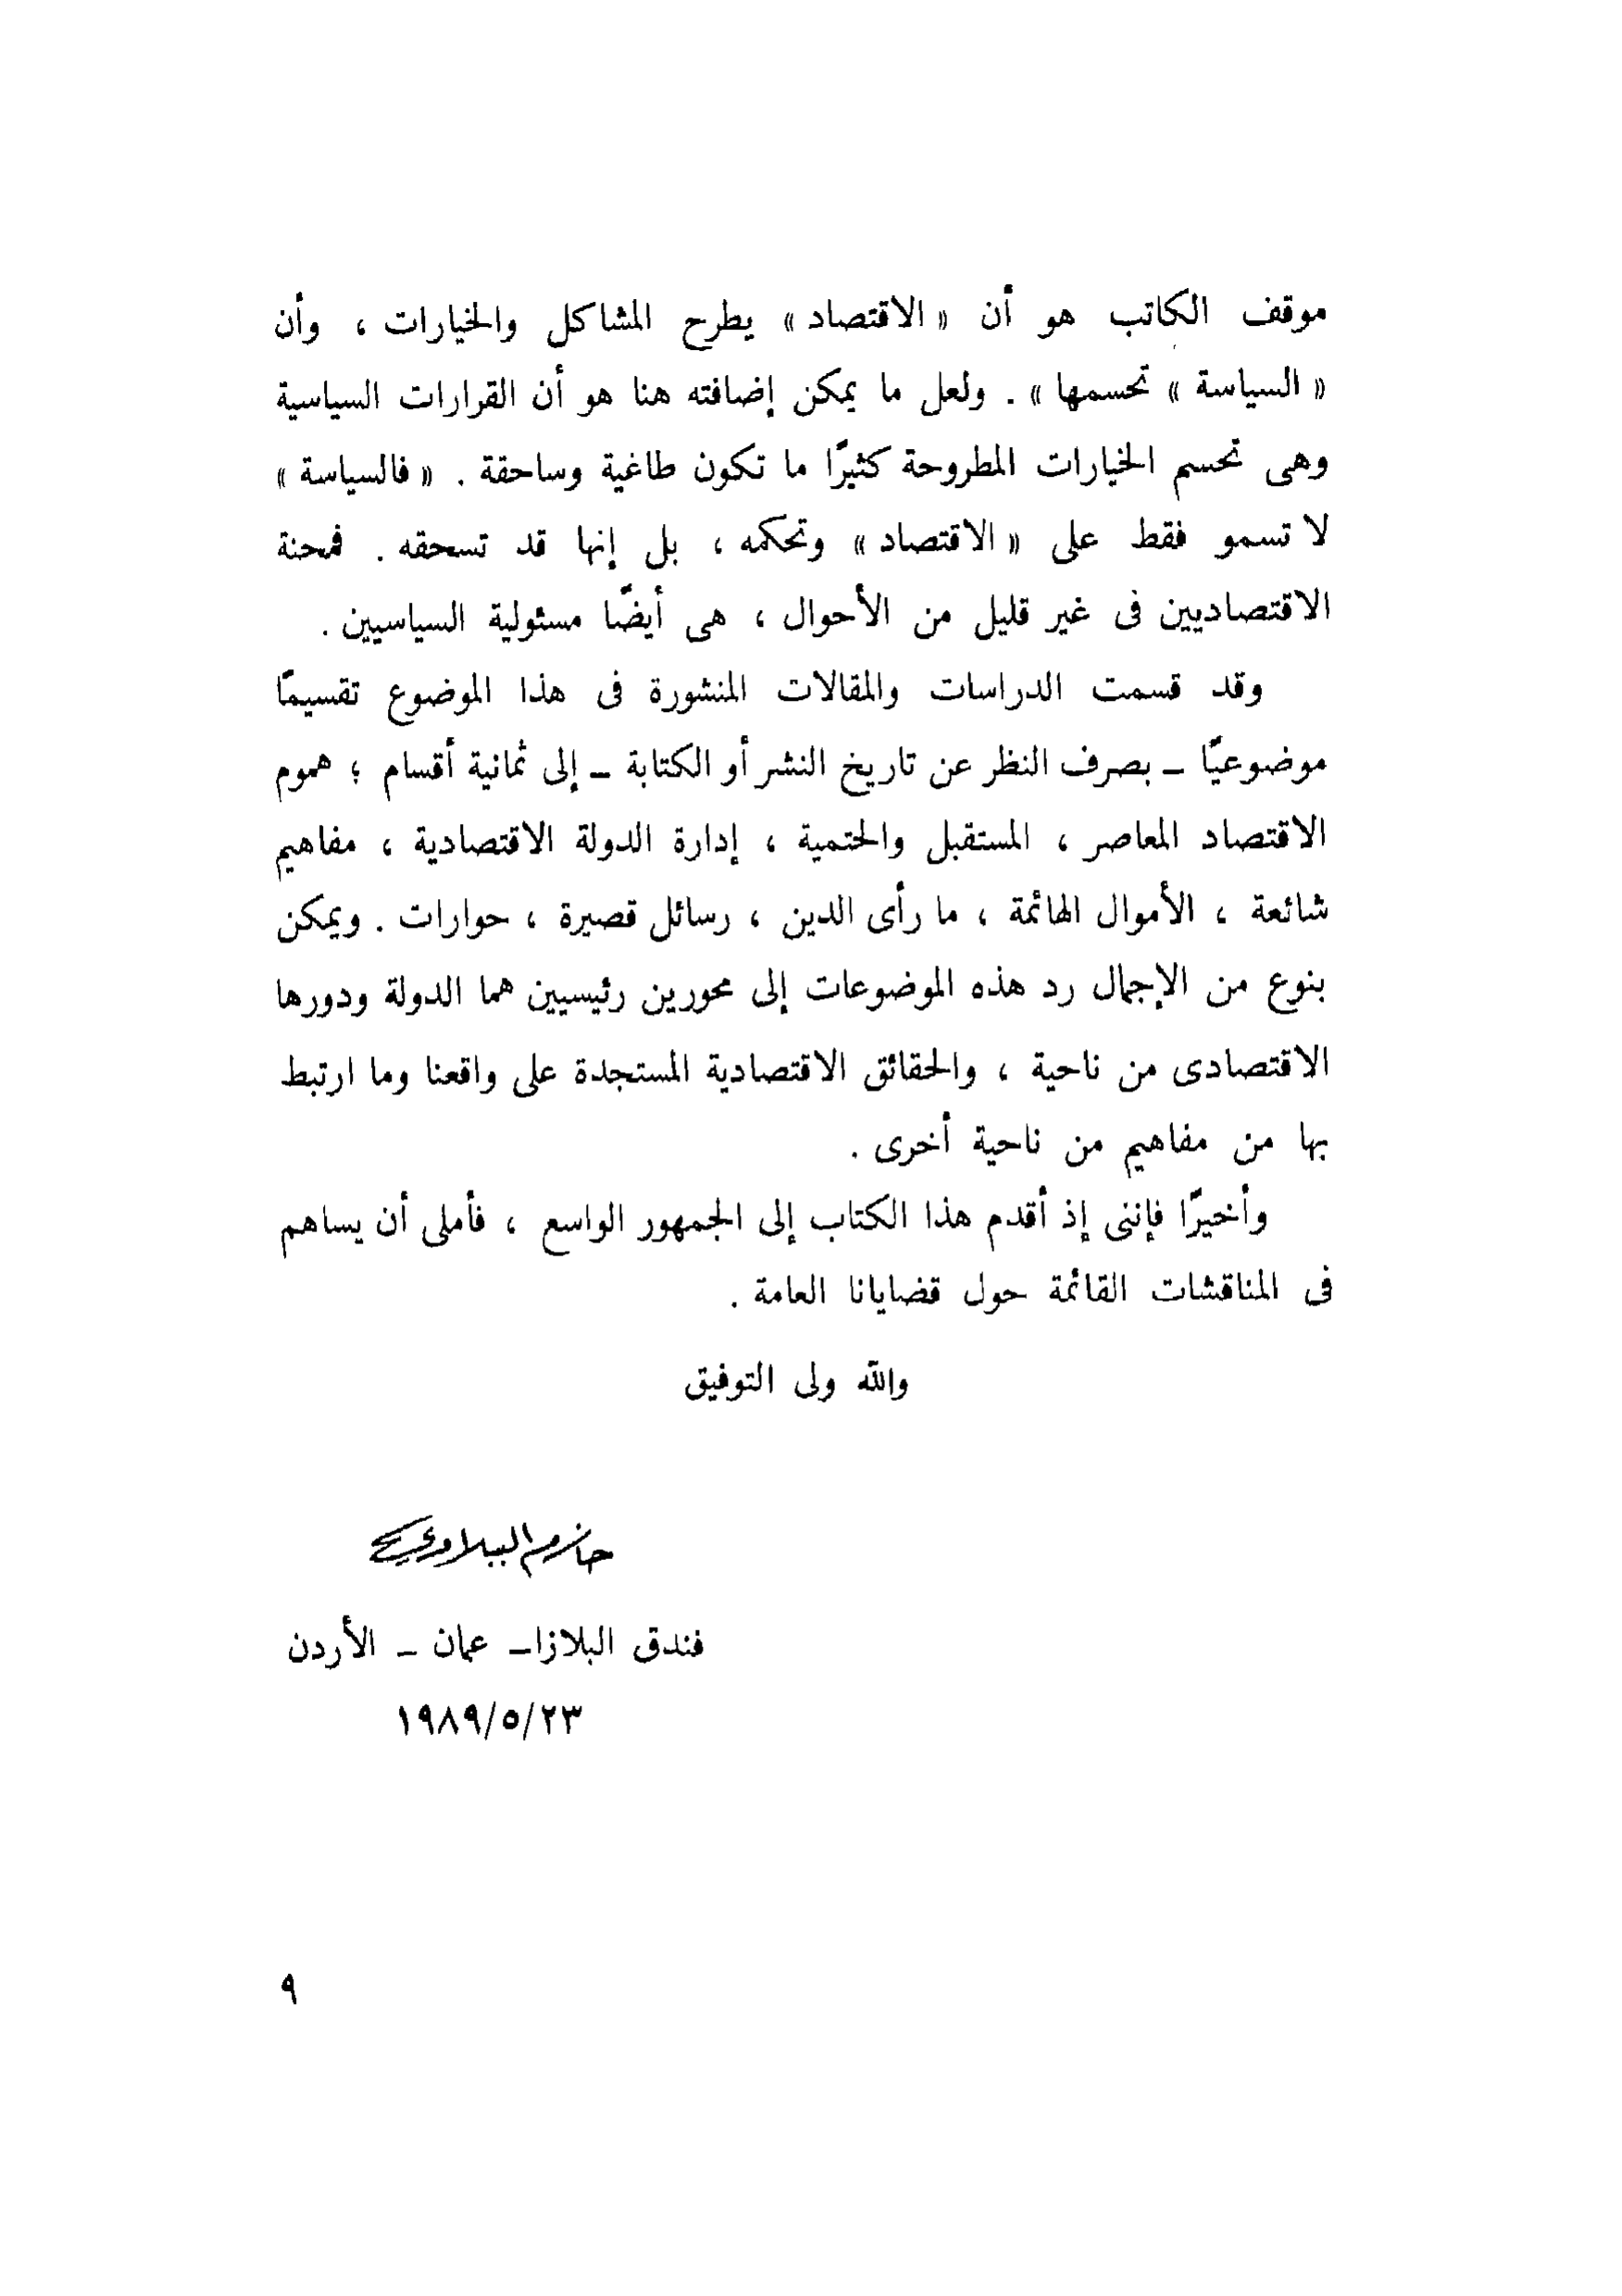 موقف الكاتب هو أن « الاقتصاد » يطرح المشاكل والخيارات ، وأن
« السياسة » تحسمها » . ولعل ما يمكن إضافته هنا هو أن القرارات السياسية
وهى تحسم الخيارات المطروحة كثيرًا ما تكون طاغية وساحقة . « فالسياسة »
لا تسمو فقط على « الاقتصاد » وتحكمه ، بل إنها قد تسحقه . فمحنة
الاقتصاديين فى غير قليل من الأحوال ، هى أيضًا مسئولية السياسيين .
وقد قسمت الدراسات والمقالات المنشورة فى هذا الموضوع تقسيمًا
موضوعيًا – بصرف النظر عن تاريخ النشر أو الكتابة – إلى ثمانية أقسام ؛ هموم
الاقتصاد المعاصر ، المستقبل والحتمية ، إدارة الدولة الاقتصادية ، مفاهيم
شائعة ، الأموال الهائمة ، ما رأى الدين ، رسائل قصيرة ، حوارات . ويمكن
بنوع من الإجمال رد هذه الموضوعات إلى محورين رئيسيين هما الدولة ودورها
الاقتصادى من ناحية ، والحقائق الاقتصادية المستجدة على واقعنا وما ارتبط
بها من مفاهيم من ناحية أخرى .
وأخيرًا فإننى إذ أقدم هذا الكتاب إلى الجمهور الواسع ، فأملى أن يساهم
فى المناقشات القائمة حول قضايانا العامة .
والله ولى التوفيق
حازم الببلاوى
فندق البلازا – عمان – الأردن
١٩٨٩/٥/٢٣
٩